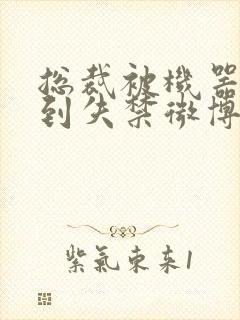 总裁被机器
到失禁微博
紫气东来1